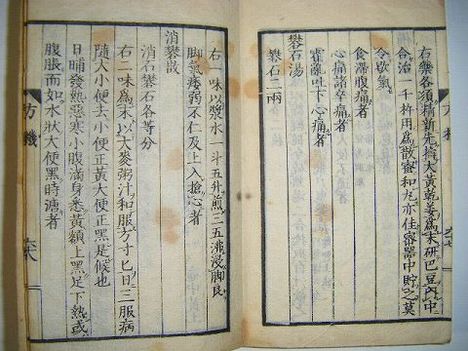 右藥各須精新先擣大黃乾姜爲末研巴豆内中
合治一千杵用爲散蜜和丸亦佳密器中貯之莫
令歇氣
食滯腹痛者
心痛諸卒痛者
霍亂吐下心痛者
礬石湯
礬石二兩
右一味以漿水一斗五升煎三五沸浸脚良
脚氣痿弱不仁及上入搶心者
消礬散
消石礬石各等分
右二味爲末以大麥粥汁和服方寸匕日三服病
隨大小便去小便正黃大便正黑是候也
日晡發熱惡寒小腹滿身悉黃額上黑足下熱或
腹脹而如水狀大便黑時溏者
方機